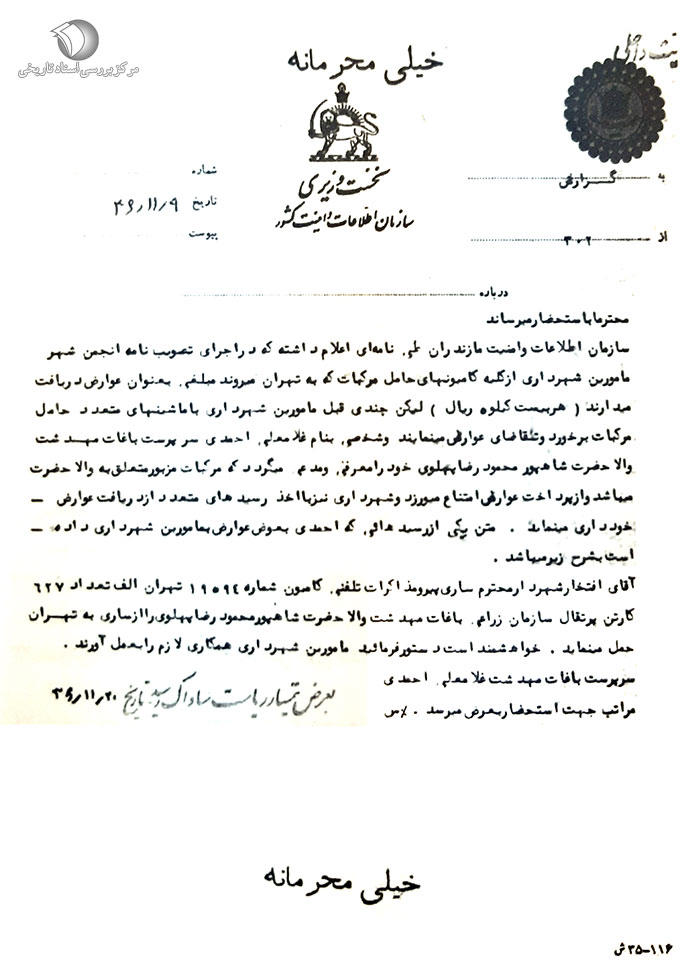 مرکز بررسی اسناد تاریخی
خیلی محرمانه
نخست وزیری
سازمان اطلاعات و امنیت کشور
به گزارش
از ۳۰۲
شماره
تاریخ ۴۶/۱۱/۹
پیوست
درباره
محترما باستحضار میرساند
سازمان اطلاعات و امنیت مازندران طی نامه‌ای اعلام داشته که در اجرای تصویب نامه انجمن شهر
مامورین شهرداری از کلیه کامیونهای حامل مرکبات که به تهران میروند مبلغی بعنوان عوارض دریافت
میدارند ( هر بیست کیلو ۵ ریال ) لیکن چندی قبل مامورین شهرداری با ماشینهای متعدد حامل
مرکبات برخورد و تقاضای عوارض مینمایند و شخصی بنام غلامعلی احمدی سرپرست باغات مهدشت
والاحضرت شاهپور محمودرضا پهلوی خود را معرفی و مدعی میگردد که مرکبات مزبور متعلق به والاحضرت
میباشد و از پرداخت عوارض امتناع میورزد و شهرداری نیز با اخذ رسیدهای متعدد از دریافت عوارض –
خودداری مینماید . متن یکی از رسیدهائی که احمدی بعوض عوارض بمامورین شهرداری داده –
است بشرح زیر میباشد .
آقای افتخار شهردار محترم ساری پیرو مذاکرات تلفنی کامیون شماره ۱۹۵۹۴ تهران الف تعداد ۶۲۷
کارتن پرتقال سازمان زراعی باغات مهدشت والاحضرت شاهپور محمودرضا پهلوی را از ساری به تهران
حمل مینماید . خواهشمند است دستور فرمائید مامورین شهرداری همکاری لازم را بعمل آورند .
سرپرست باغات مهدشت غلامعلی احمدی
مراتب جهت استحضار بعرض میرسد . س
بعرض تیمسار ریاست ساواک رسید تاریخ ۴۶/۱۱/۲۰
خیلی محرمانه
۱۱۶–۳۵ ش